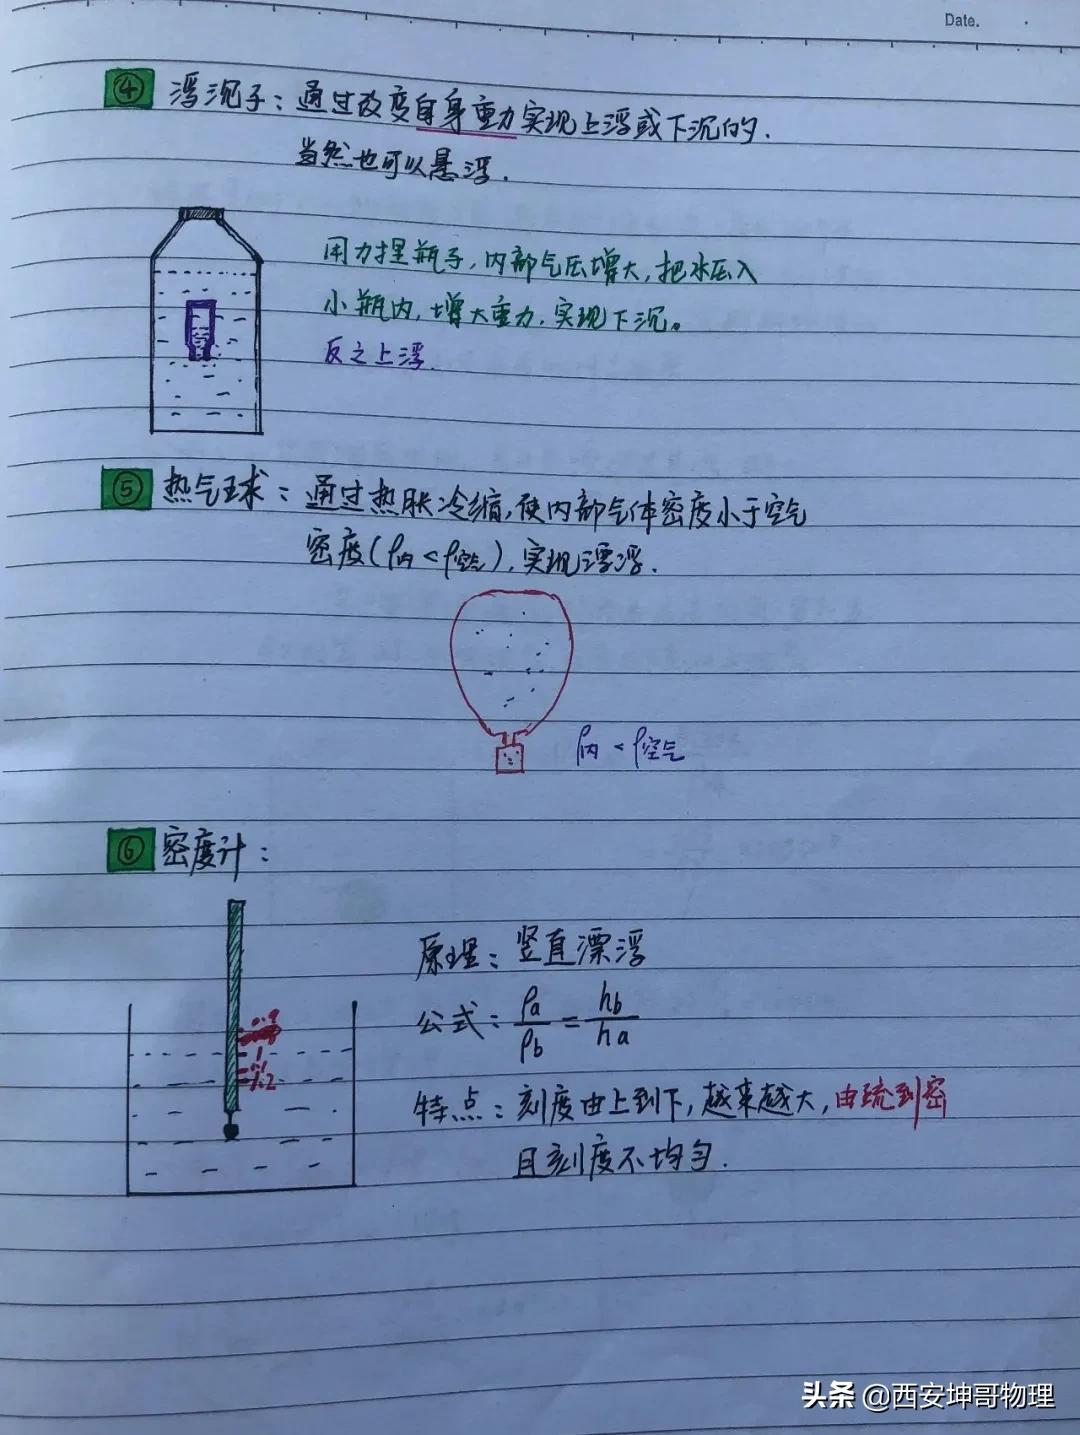 Date.
④ 浮沉子：通过改变自身重力实现上浮或下沉的.
当然也可以悬浮.
用力捏瓶子,内部气压增大,把水压入
小瓶内,增大重力,实现下沉。
反之上浮.
⑤ 热气球：通过热胀冷缩,使内部气体密度小于空气
密度(ρ内<ρ空气),实现漂浮.
ρ内 < ρ空气
⑥ 密度计：
原理：竖直漂浮
公式：ρa/ρb = hb/ha
0.9
1
1.1
1.2
特点：刻度由上到下,越来越大,由疏到密
且刻度不均匀.
头条 @西安坤哥物理